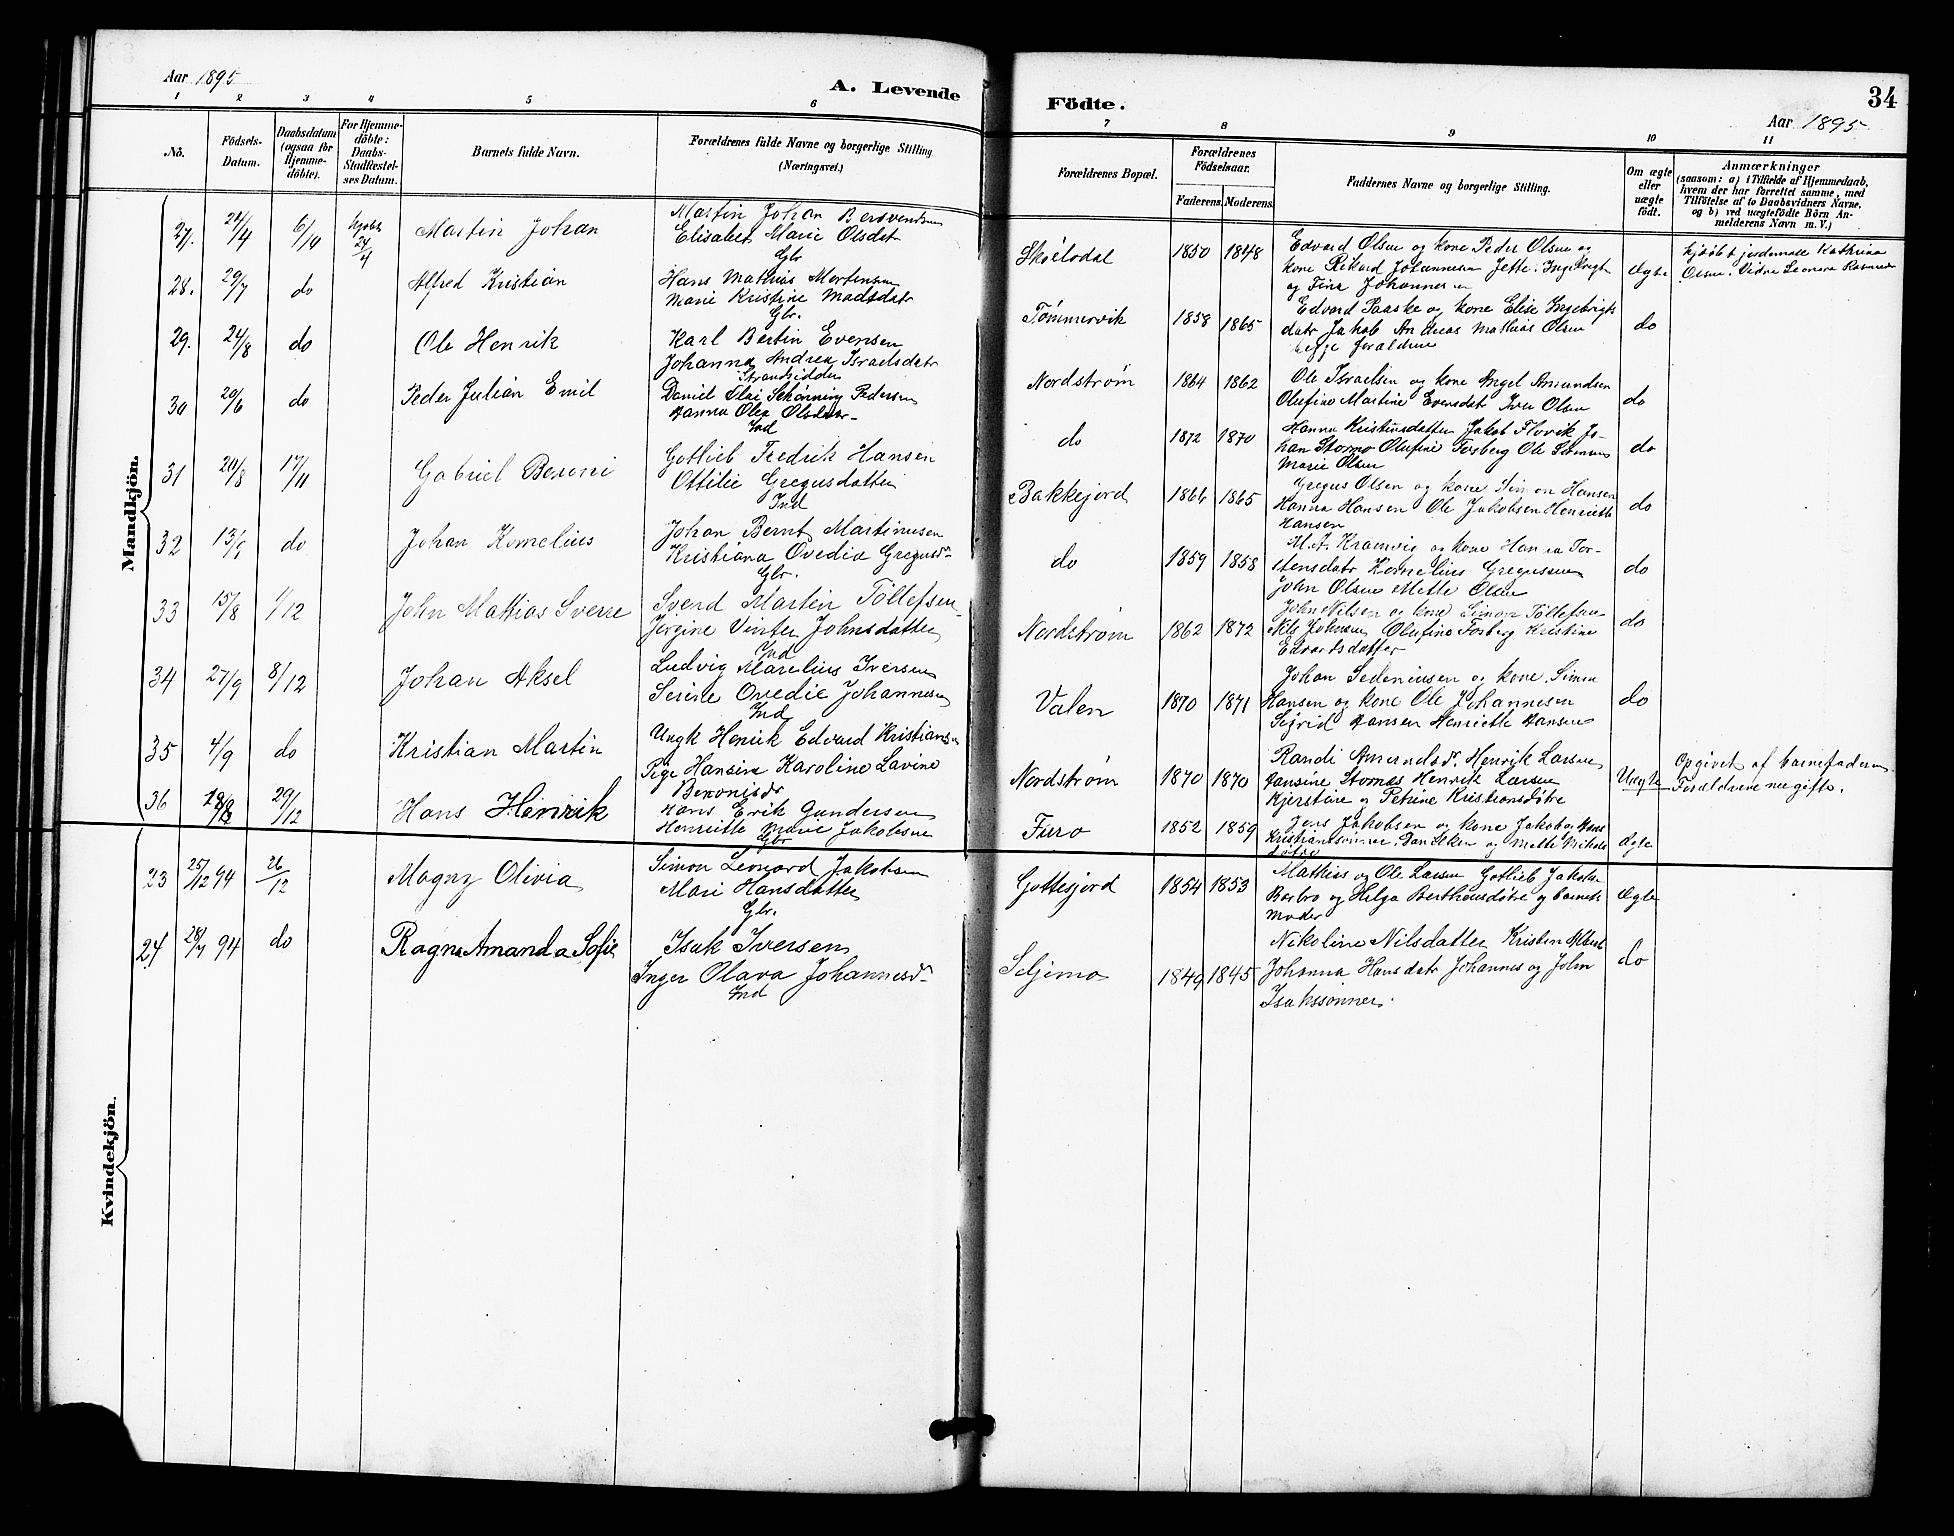 Aar 1895
A. Levende
Födte.
34
Aar 1895
1 2 3 4 5 6 7 8 9 10 11
No.
Födsels-
Datum.
Daabsdatum
(ogsaa for
Hjemme-
döbte).
For Hjemme-
döbte:
Daabs-
Stadfæstel-
ses Datum.
Barnets fulde Navn.
Forældrenes fulde Navne og borgerlige Stilling
(Næringsvei.)
Forældrenes Bopæl.
Forældrenes
Födselsaar.
Faderens. Moderens.
Faddernes Navne og borgerlige Stilling.
Om ægte
eller
uægte
födt.
Anmærkninger
(saasom: a) i Tilfælde af Hjemmedaab,
hvem der har forrettet samme, med
Tilföielse af to Daabsvidners Navne,
og b) ved uægtefödte Börn An-
melderens Navn m. V.)
Mandkjön.
27. 24/4 6/4 24/4 Martin Johan
Martin Johan
Elisabet Marie Olsdat
Gbr
1850 1848
Edvard Olsen og kone Peder Olsen og
kone Rikard Johannesen Jette Ingebrigt
og Tina Johannesen
Ægte
hjdøbt jordemor Kathrina
Olsen. Vidne Leonora
28. 29/7 do Alfred Kristian
Hans Mathias Mortensen
Marie Kristine Madsdatr
Gbr.
Tømmervik 1858 1865
Edvard Paaske og kone Elise Ingebrigts
datr Jakob Andreas Mathias Olsen
begge foraldrene
do
29. 24/8 do Ole Henrik
Karl Bertin Evensen
Johanna Andrea Israelsdatr
Strandsidder
Nordstrøm 1864 1862
Ole Israelsen og kone Angel Amundsen
Olufine Martine Evensdat Iver Olsen
do
30 20/6 do Peder Julian Emil
Daniel Olai Schønning Pedersen
Hanna Olea Olsdatr
Ind
do 1872 1870
Hanna Kristinsdatter Jakob Flovik Jo-
han Stormo Olufine Forsberg Ole
Marie Olsen
do
31 20/8 17/11 Gabriel Beroni
Gotlieb Fredrik Hansen
Ottilie Gregusdatter
Ind
Bakkejord 1866 1865
Gregus Olsen og kone Simon Hansen
Hanna Hansen Ole Jakobsen Henriette
Hansen
do
32 13/9 do Johan Kornelius
Johan Bernt Martinusen
Kristiana Ovedia Gregusdr
Gbr.
do 1859 1858
M. A. Kramvig og kone Hanna Tor-
stensdatr Kornelius Gregussen
John Olsen Mette Olsen
do
33 15/8 1/12 John Mathias Sverre
Svend Martin Tollefsen
Jorgine Vinter Johnsdatter
Ind
Nordstrøm 1862 1872
John Nilsen og kone Simon Tollefsen
Nils Johnsen Olufine Fosberg Kristine
Edvardsdatter
do
34 27/9 8/12 Johan Aksel
Ludvig Marelius Iversen
Serine Ovedie Johannesen
Ind
Valen 1870 1871
Johan Sedeniusen og kone Simon
Hansen og kone Ole Johannesen
Sigrid Hansen Henriette Hansen
do
35 4/9 do Kristian Martin
Ungk Henrik Edvard Kristiansen
Pige Hansine Karoline Lavine
Beronisdr
Nordstrøm 1870 1870
Randi Amundsdr. Henrik Larsen
Hansine Stornes Henrik Larsen
Kjerstine og Petrine Kristiansdøtre
Uægte
Opgivet af barnefaderen
Forældrene nu gifte.
36 29/12 Hans Henrik
Hans Erik Gundersen
Henriette Marie Jakobsen
Gbr
Furo 1852 1859
Jens Jakobsen og kone Jakob og Hans
Kristiansønner. Dan Elken og Mette Nikols
døtre
Ægte
Kvindekjön.
23 25/12 94 26/12 Magny Olivia
Simon Leonard Jakobsen
Mari Hansdatter
Gbr.
Gottesjord 1854 1853
Mathias og Ole Larsen Gotlieb Jakobs
Barbro og Helga Bertheusdøtre og barnets
Moder
Ægte
24 28/7 94 do Ragna Amanda Sofie
Isak Iversen
Inger Olava Johannesdr
Ind
Seljemo 1849 1845
Nikoline Nilsdatter Kristen Albert
Johanna Hansdatr Johannes og John
Isakssønner.
do